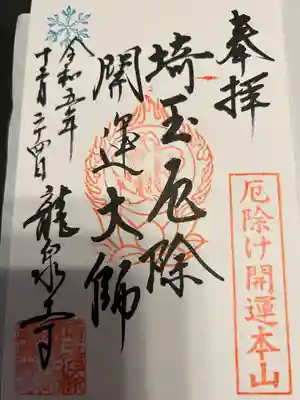 奉拝
厄除け開運本山
埼玉厄除
開運大師
令和五年
十二月二十四日
龍泉寺